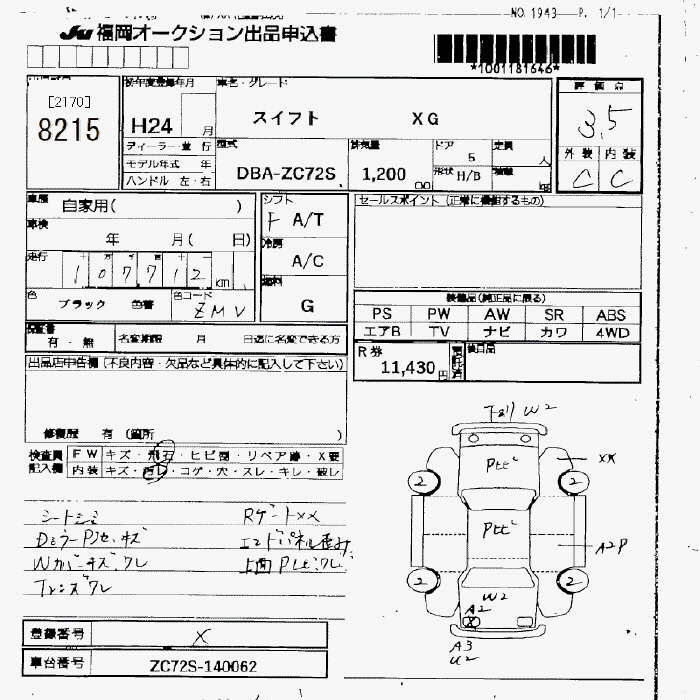 NO.1943 P. 1/1
Ju 福岡オークション出品申込書
*1001181646*
[2170]
8215
初年度登録年月
H24 月
車名・グレード
スイフト XG
評価点
3.5
外装 内装
C C
ディーラー・並行
モデル年式 年
ハンドル 左・右
型式
DBA-ZC72S
排気量
1,200 cc
ドア
5
形状 H/B
定員
人
積載
kg
車歴
自家用( )
車検
年 月( 日)
走行
十 万 千 百 十 一
107712 km
色
ブラック 色替
色コード
ZMV
シフト
F A/T
冷房
A/C
燃料
G
セールスポイント (正常に機能するもの)
装備品(純正品に限る)
PS PW AW SR ABS
エアB TV ナビ カワ 4WD
保証書
有・無
名変期限 月 日迄に名変できる方
R券
11,430円
預託済
後日品
出品店申告欄 (不良内容・欠品など具体的に記入して下さい)
修復歴 有 (箇所 )
検査員記入欄
FW キズ・飛石・ヒビ割・リペア跡・X要
内装 キズ・汚レ・コゲ・穴・スレ・キレ・破レ
シートシミ
Rゲートxx
Dミラー
Wカバーキズ、ワレ
上面
登録番号 X
車台番号 ZC72S-140062
W2
XX
2
2
A2P
2
2
W2
A2
X
A3
U2